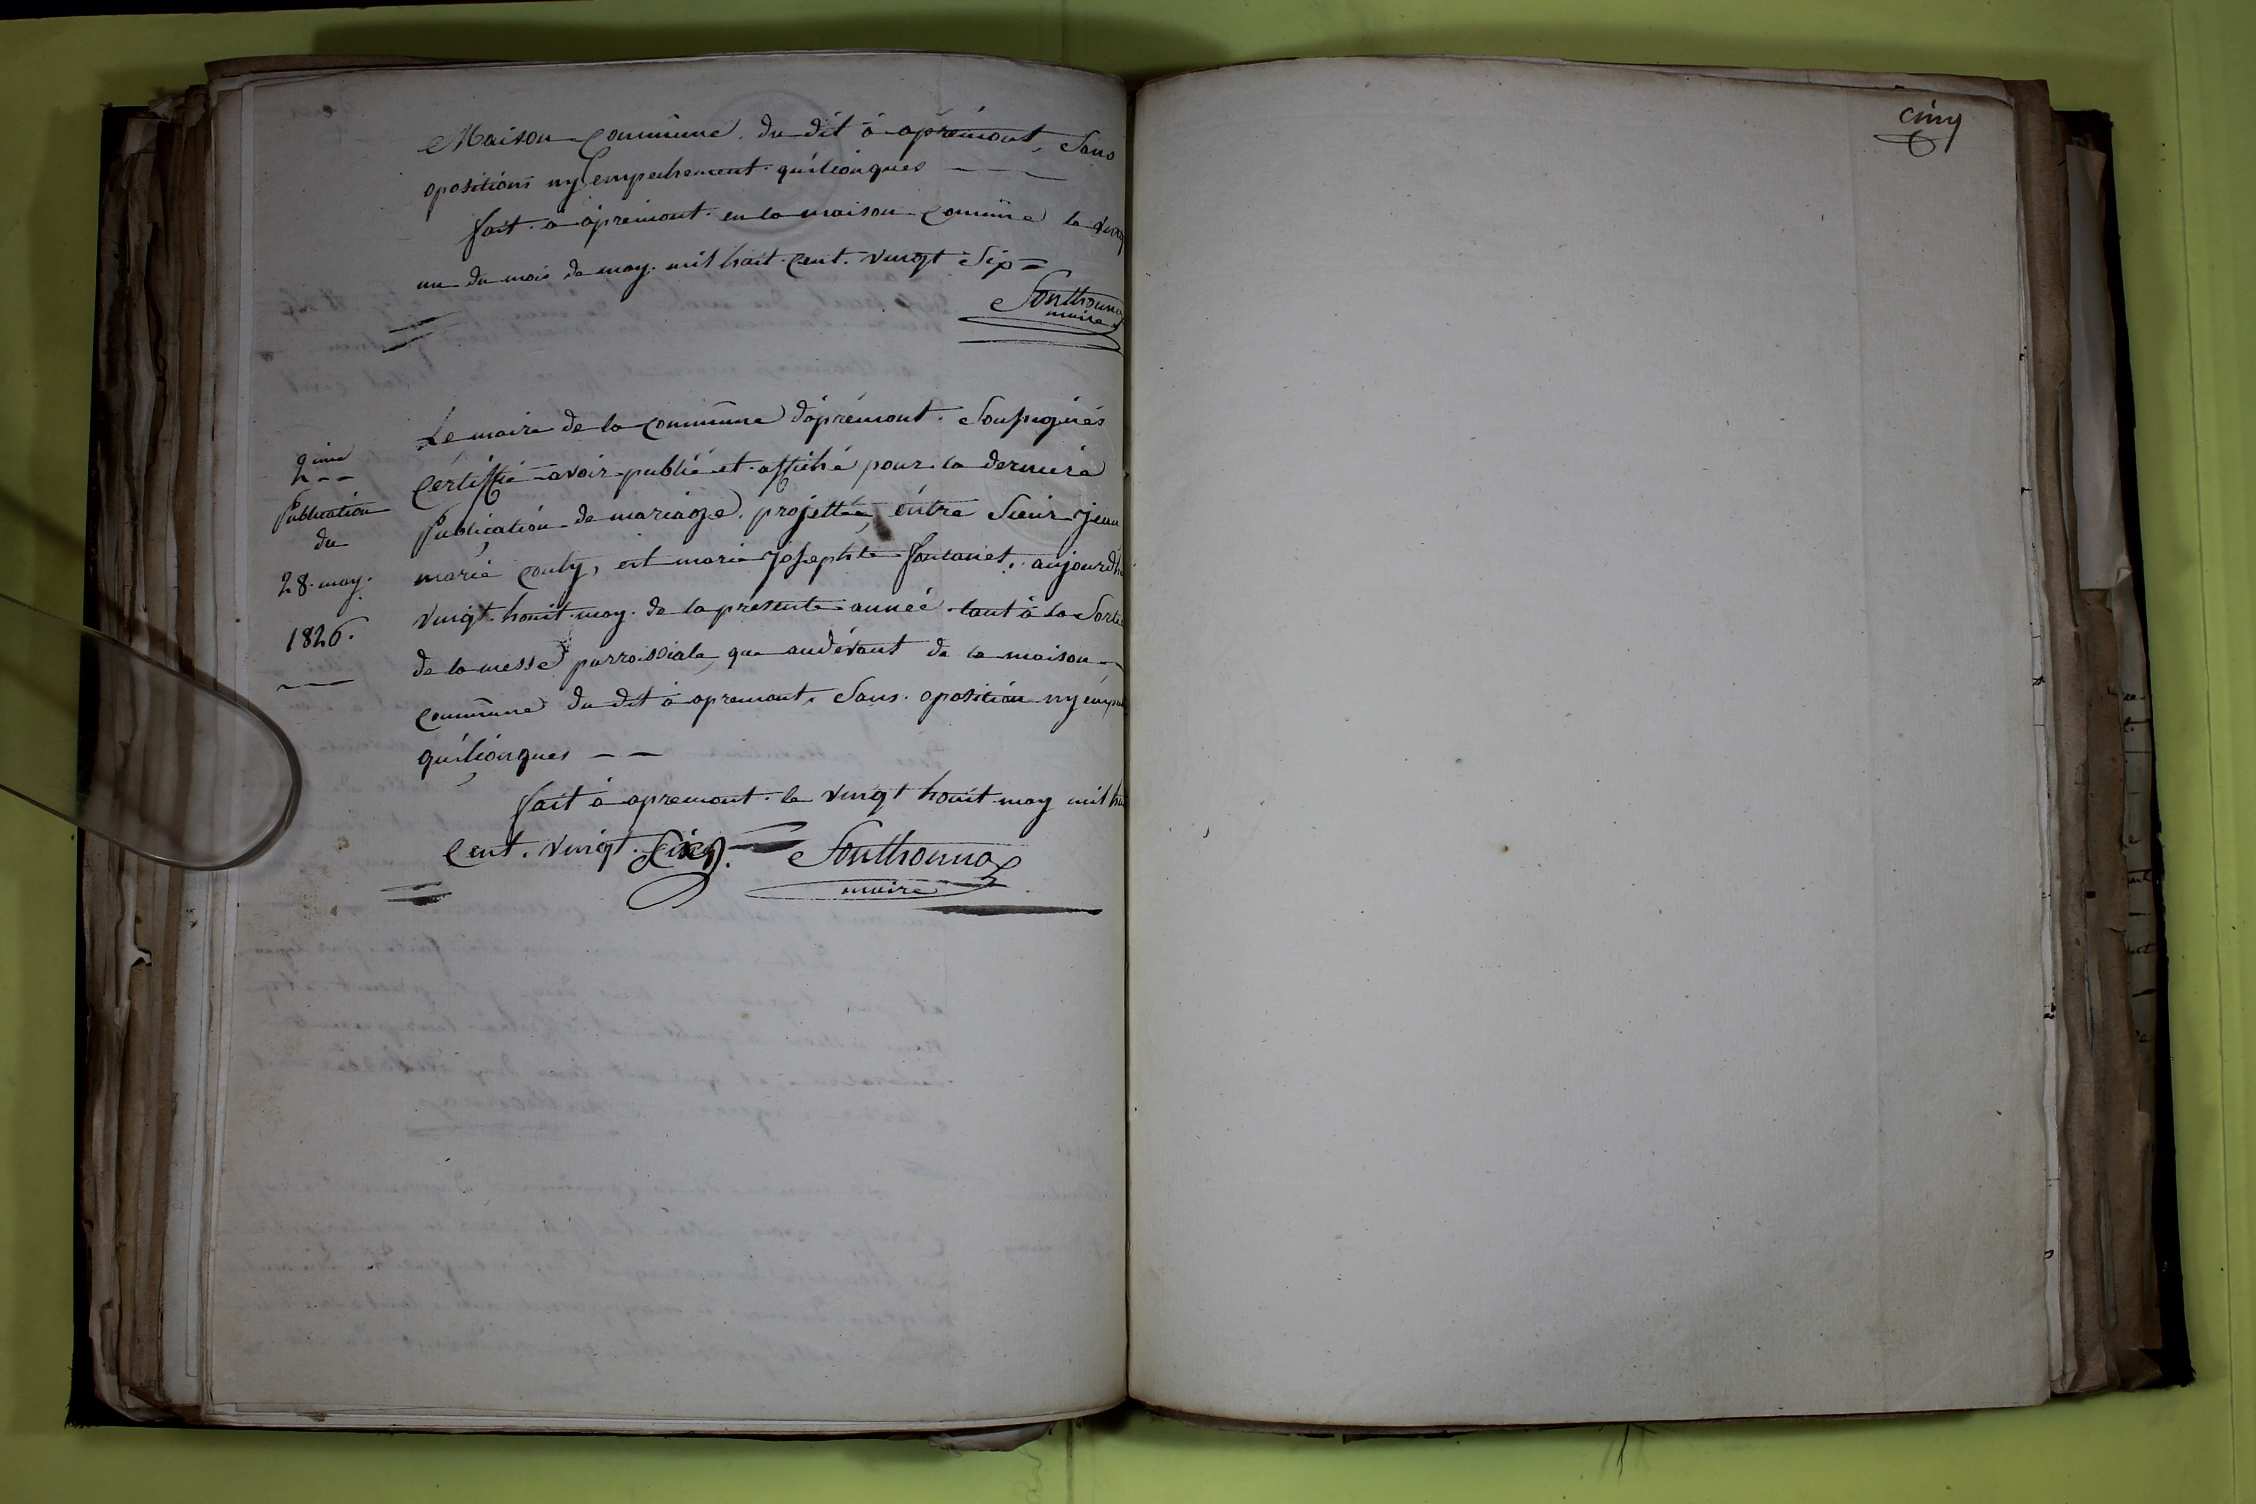 Maison Commune du dit à apremont, Sans
opositions ny empechement quelconques
fait à apremont en la maison Commune le vingt
un du mois de may mil huit Cent vingt Six
Sonthonna
maire
2ime
Publication
du
28 may
1826.
Le maire de la Commune d'apremont Soussignés
Certiffie avoir publié et affiché pour la derniere
Publication de mariage projettée entre Sieur Jean
marie Couty, et marie Josephte aujourd'hui
vingt houit may de la presente année tant à la Sortie
de la messe parroissiale, que au dévant de la maison
Commune du dit à apremont, Sans oposition ny
quelconques
fait à apremont le vingt houit may mil
Cent vingt Six
Sonthonnax
maire
cinq